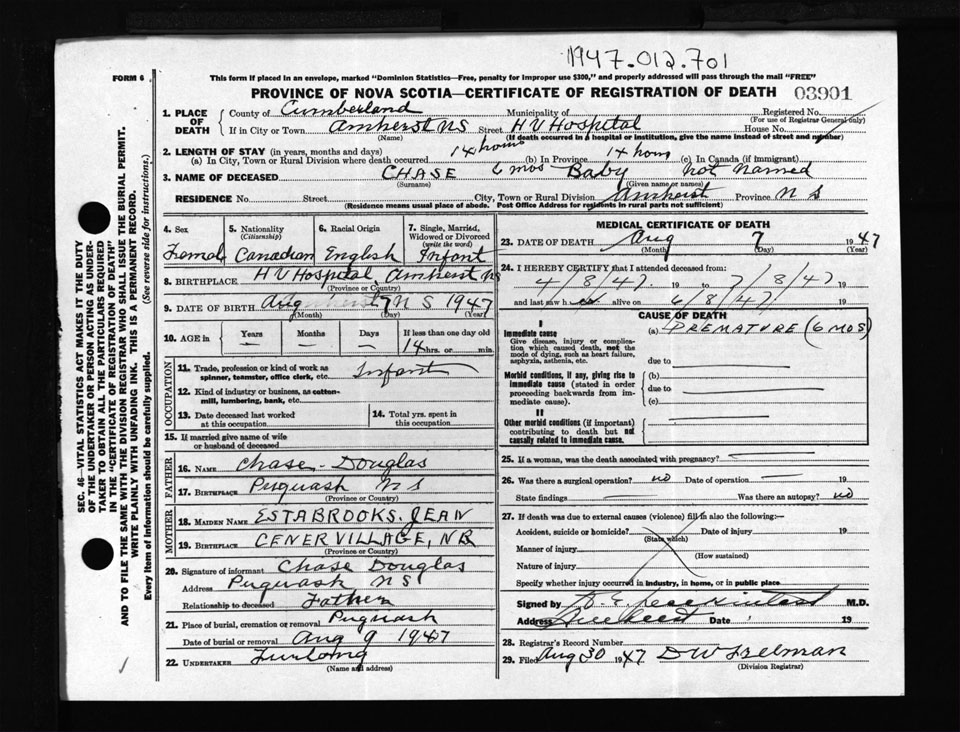 1947.012.701
FORM 6
This form if placed in an envelope, marked "Dominion Statistics—Free, penalty for improper use $300," and properly addressed will pass through the mail "FREE"
PROVINCE OF NOVA SCOTIA—CERTIFICATE OF REGISTRATION OF DEATH 03901
SEC. 46—VITAL STATISTICS ACT MAKES IT THE DUTY
OF THE UNDERTAKER OR PERSON ACTING AS UNDER-
TAKER TO OBTAIN ALL THE PARTICULARS REQUIRED
IN THE "CERTIFICATE OF REGISTRATION OF DEATH"
AND TO FILE THE SAME WITH THE DIVISION REGISTRAR WHO SHALL ISSUE THE BURIAL PERMIT.
WRITE PLAINLY WITH UNFADING INK. THIS IS A PERMANENT RECORD.
Every item of information should be carefully supplied. (See reverse side for instructions.)
1. PLACE OF DEATH
County of Cumberland Municipality of Registered No.
(For use of Registrar General only)
If in City or Town Amherst NS Street H V Hospital House No.
(Name) (If death occurred in a hospital or institution, give the name instead of street and number)
2. LENGTH OF STAY (in years, months and days)
(a) In City, Town or Rural Division where death occurred 14 hours (b) In Province 14 hours (c) In Canada (if immigrant)
3. NAME OF DECEASED CHASE 6 mos Baby not named
(Surname) (Given name or names)
RESIDENCE No. Street City, Town or Rural Division Amherst Province N S
(Residence means usual place of abode. Post Office Address for residents in rural parts not sufficient)
4. Sex Female
5. Nationality (Citizenship) Canadian
6. Racial Origin English
7. Single, Married, Widowed or Divorced (write the word) Infant
8. BIRTHPLACE H V Hospital Amherst NS
(Province or Country)
9. DATE OF BIRTH Aug 7 N S 1947
(Month) (Day) (Year)
10. AGE in Years Months Days If less than one day old
14 hrs. or min.
OCCUPATION
11. Trade, profession or kind of work as spinner, teamster, office clerk, etc. Infant
12. Kind of industry or business, as cotton-mill, lumbering, bank, etc.
13. Date deceased last worked at this occupation
14. Total yrs. spent in this occupation
15. If married give name of wife or husband of deceased
FATHER
16. NAME Chase Douglas
17. BIRTHPLACE Pugwash N S
(Province or Country)
MOTHER
18. MAIDEN NAME ESTABROOKS. JEAN
19. BIRTHPLACE CENER VILLAGE, NB
(Province or Country)
20. Signature of informant Chase Douglas
Address Pugwash NS
Relationship to deceased Father
21. Place of burial, cremation or removal Pugwash
Date of burial or removal Aug 9 1947
22. UNDERTAKER Furlong
(Name and address)
MEDICAL CERTIFICATE OF DEATH
23. DATE OF DEATH Aug 7 1947
(Month) (Day)
24. I HEREBY CERTIFY that I attended deceased from:
4/8/47. 19 to 7/8/47 19
and last saw h alive on 6/8/47. 19
CAUSE OF DEATH
I
Immediate cause (a) PREMATURE (6 MOS)
Give disease, injury or complication which caused death, not the mode of dying, such as heart failure, asphyxia, asthenia, etc.
due to
Morbid conditions, if any, giving rise to immediate cause (stated in order proceeding backwards from immediate cause).
(b)
due to
(c)
II
Other morbid conditions (if important) contributing to death but not causally related to immediate cause.
25. If a woman, was the death associated with pregnancy?
26. Was there a surgical operation? no Date of operation 19
State findings Was there an autopsy? no
27. If death was due to external causes (violence) fill in also the following:—
Accident, suicide or homicide? Date of injury 19
(State which)
Manner of injury
(How sustained)
Nature of injury
Specify whether injury occurred in industry, in home, or in public place
Signed by M.D.
Address Date 19
28. Registrar's Record Number
29. Filed Aug 30 1947 D W
(Division Registrar)